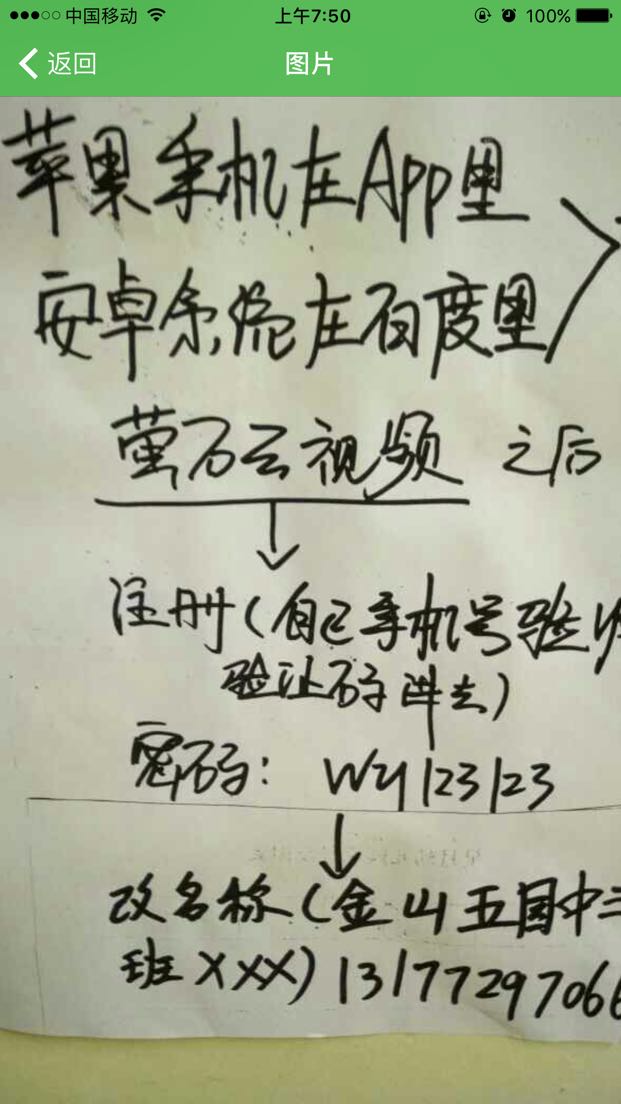 中国移动 上午7:50 100%
返回 图片
苹果手机在App里
安卓系统在百度里
萤石云视频 之后
注册(自己手机号验
验证码进去)
密码: wy123123
改名称(金山五园中三
班XXX) 13177297066